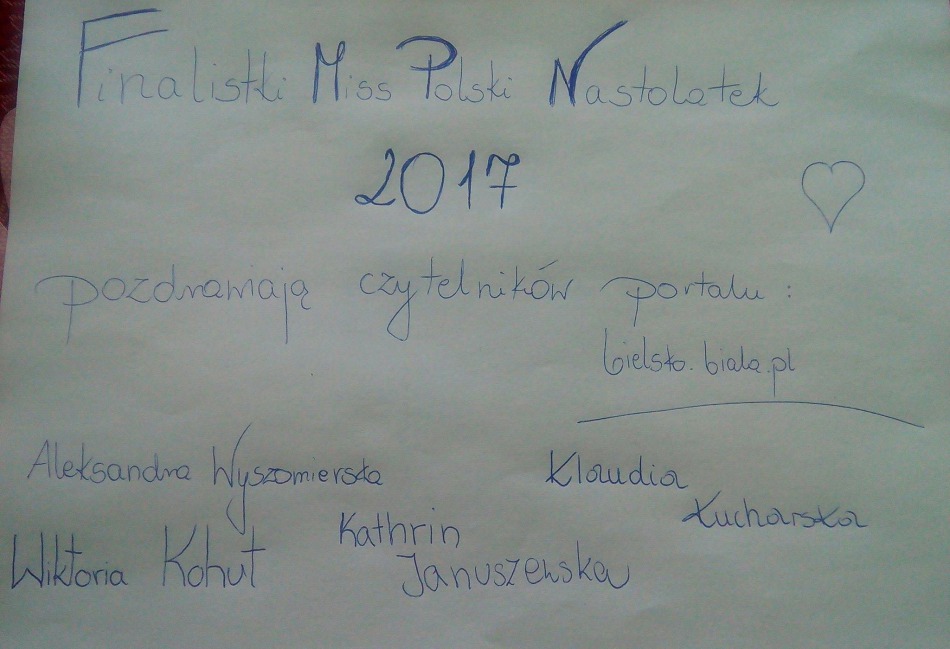 Finalistki Miss Polski Nastolatek
2017
pozdrawiają czytelników portalu :
bielsko.biala.pl
Aleksandra Wyszomierska
Klaudia
Kucharska
Wiktoria Kohut
Kathrin
Januszewska